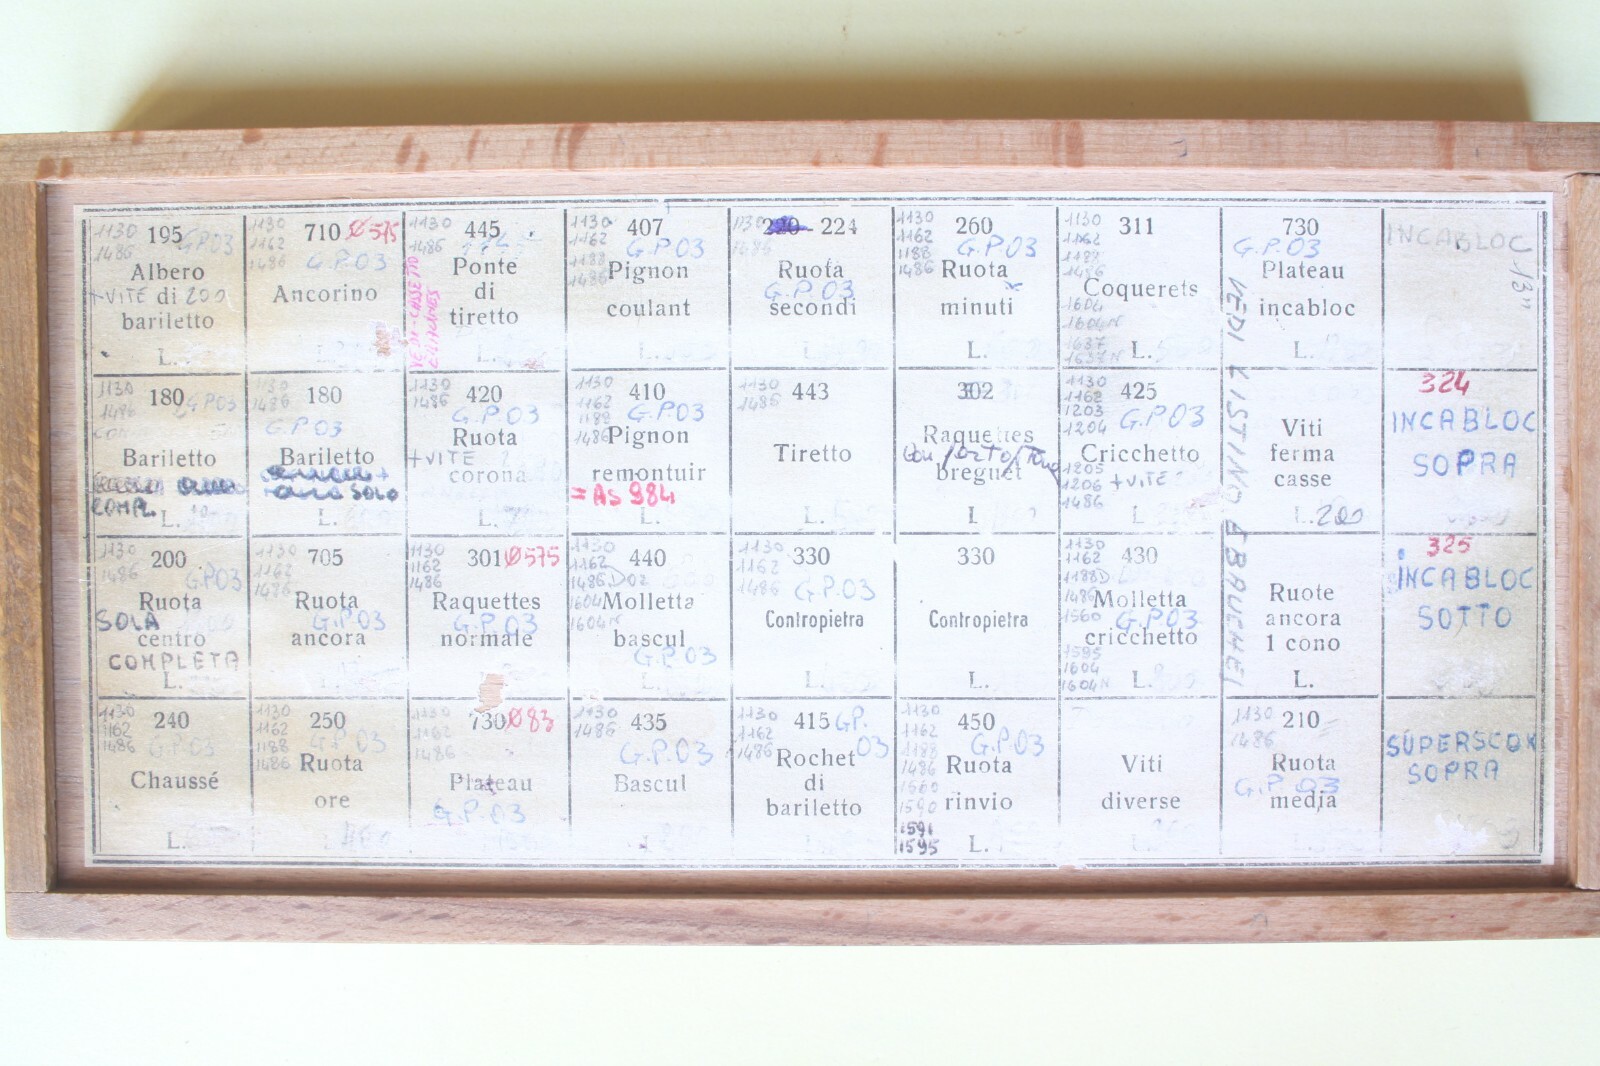 1130
1486
195
G.P03
Albero
+VITE di 200
bariletto
L.
1130
1162
1486
710 Ø575
G.P.03
Ancorino
1130
1486
445
Ponte
di
tiretto
L.
1130
1162
1188
1486
407
G.P.03
Pignon
coulant
L.
1130
1486
220 - 224
Ruota
G.P.03
secondi
L.
1130
1162
1188
1486
260
G.P.03
Ruota
minuti
L.
1130
1162
1188
1486
311
Coquerets
1604
1604N
1637
1637N
L.
730
G.P.03
Plateau
incabloc
L.
VEDI LISTINO EBAUCHE
INCABLOC
13"
1130
1486
180
G.P03
Bariletto
COMPL.
L.
1130
1486
180
G.P03
Bariletto
+
SOLO
L.
1130
1486
420
G.P.03
Ruota
+VITE
corona
L.
1130
1162
1188
1486
410
G.P03
Pignon
remontuir
= AS 984
L.
1130
1486
443
Tiretto
L.
302
Raquettes
breguet
1130
1162
1203
1204
425
G.P.03
Cricchetto
1205
1206 +VITE
1486
L
Viti
ferma
casse
L. 200
324
INCABLOC
SOPRA
1130
1486
200
G.P03
Ruota
SOLA
centro
COMPLETA
L.
1130
1162
1486
705
Ruota
G.P03
ancora
1130
1162
1486
301 Ø575
Raquettes
G.P.03
normale
1130
1162
1486
1604
1604N
440
Molletta
bascul
G.P.03
L.
1130
1162
1486
330
G.P.03
Contropietra
L.
330
Contropietra
L.
1130
1162
1188D
1486
1560
430
Molletta
G.P.03
cricchetto
1595
1604
1604N
L.
Ruote
ancora
1 cono
L.
325
INCABLOC
SOTTO
1130
1162
1486
240
G.P.03
Chaussé
L.
1130
1162
1188
1486
250
G.P.03
Ruota
ore
1130
1162
1486
730 Ø83
Plateau
G.P.03
1130
1486
435
G.P.03
Bascul
L.
1130
1162
1486
415 G.P.
03
Rochet
di
bariletto
L.
1130
1162
1188
1486
1560
1590
1591
1595
450
G.P.03
Ruota
rinvio
L.
Viti
diverse
L.
1130
1486
210
Ruota
G.P.03
media
L.
SUPERSCOK
SOPRA